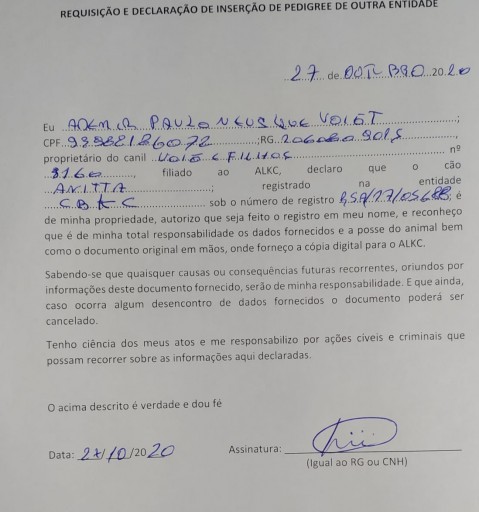 REQUISIÇÃO E DECLARAÇÃO DE INSERÇÃO DE PEDIGREE DE OUTRA ENTIDADE
27 de OUTUBRO 2020
Eu ADEMIR PAULO VOIGT;
CPF ;RG
proprietário do canil VOIGT E FILHOS nº
3160, filiado ao ALKC, declaro que o cão
ANITTA; registrado na entidade
CBKC sob o número de registro RSA/17/05688; é
de minha propriedade, autorizo que seja feito o registro em meu nome, e reconheço
que é de minha total responsabilidade os dados fornecidos e a posse do animal bem
como o documento original em mãos, onde forneço a cópia digital para o ALKC.
Sabendo-se que quaisquer causas ou consequências futuras recorrentes, oriundos por
informações deste documento fornecido, serão de minha responsabilidade. E que ainda,
caso ocorra algum desencontro de dados fornecidos o documento poderá ser
cancelado.
Tenho ciência dos meus atos e me responsabilizo por ações cíveis e criminais que
possam recorrer sobre as informações aqui declaradas.
O acima descrito é verdade e dou fé
Data: 27/10/2020 Assinatura:
(Igual ao RG ou CNH)